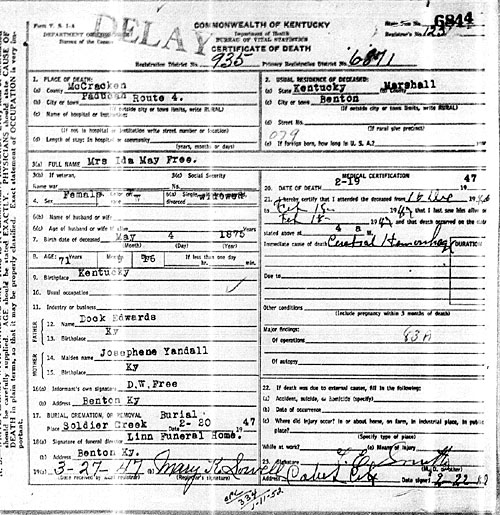 Form V. S. 1-A
DELAY
COMMONWEALTH OF KENTUCKY
Department of Health
BUREAU OF VITAL STATISTICS
CERTIFICATE OF DEATH
6844
Registrar's No. 123
Registration District No. 935 Primary Registration District No. 6871
1. PLACE OF DEATH:
(a) County McCracken
(b) City or town Paducah Route 4.
(If outside city or town limits, write RURAL)
(c) Name of hospital or institution
(If not in hospital or institution write street number or location)
(d) Length of stay: in hospital or community
(years, month or days)
2. USUAL RESIDENCE OF DECEASED:
(a) State Kentucky Marshall
(c) City or town Benton
(If outside city or town limits, write RURAL)
(d) Street No.
(If rural give precinct)
079
(e) If foreign born, how long in U. S. A.?
3(a) FULL NAME Mrs Ida May Free.
3(b) If veteran, name war
3(c) Social Security
4. Sex Female
widowed
6(b) Name of husband or wife
6(c) Age of husband or wife if alive
7. Birth date of deceased May 4 1875
(Month) (Day) (Year)
8. AGE: 71
If less than one day
hr. min.
9. Birthplace Kentucky
10. Usual occupation
11. Industry or business
FATHER
12. Name Dock Edwards
13. Birthplace Ky
MOTHER
14. Maiden name Josephene Yandall
15. Birthplace Ky
16(a) Informant's own signature D.W.Free
(b) Address Benton Ky
17. BURIAL, CREMATION, OR REMOVAL Burial
Place Soldier Creek 2-20 47
18(a) Signature of funeral director Linn Funeral Home.
(b) Address Benton Ky.
19(a) 3-27-47 (b)
(Date received by local registrar) (Registrar's signature)
MEDICAL CERTIFICATION
20. DATE OF DEATH 2-19 47
21. I hereby certify that I attended the deceased from
that I last saw him alive on
and that death occurred on the date
stated above at 4 a M.
Immediate cause of death Cerebral Hemorrhage DURATION
Due to
Other conditions
(Include pregnancy within 3 months of death)
Major findings:
Of operations 83A
Of autopsy
22. If death was due to external causes, fill in the following:
(a) Accident, suicide, or homicide (specify)
(b) Date of occurrence
(c) Where did injury occur? In or about home, on farm, in industrial place, in public place?
(Specify type of place)
While at work? (e) Means of injury
23. Signature
Address
Date signed 2-22